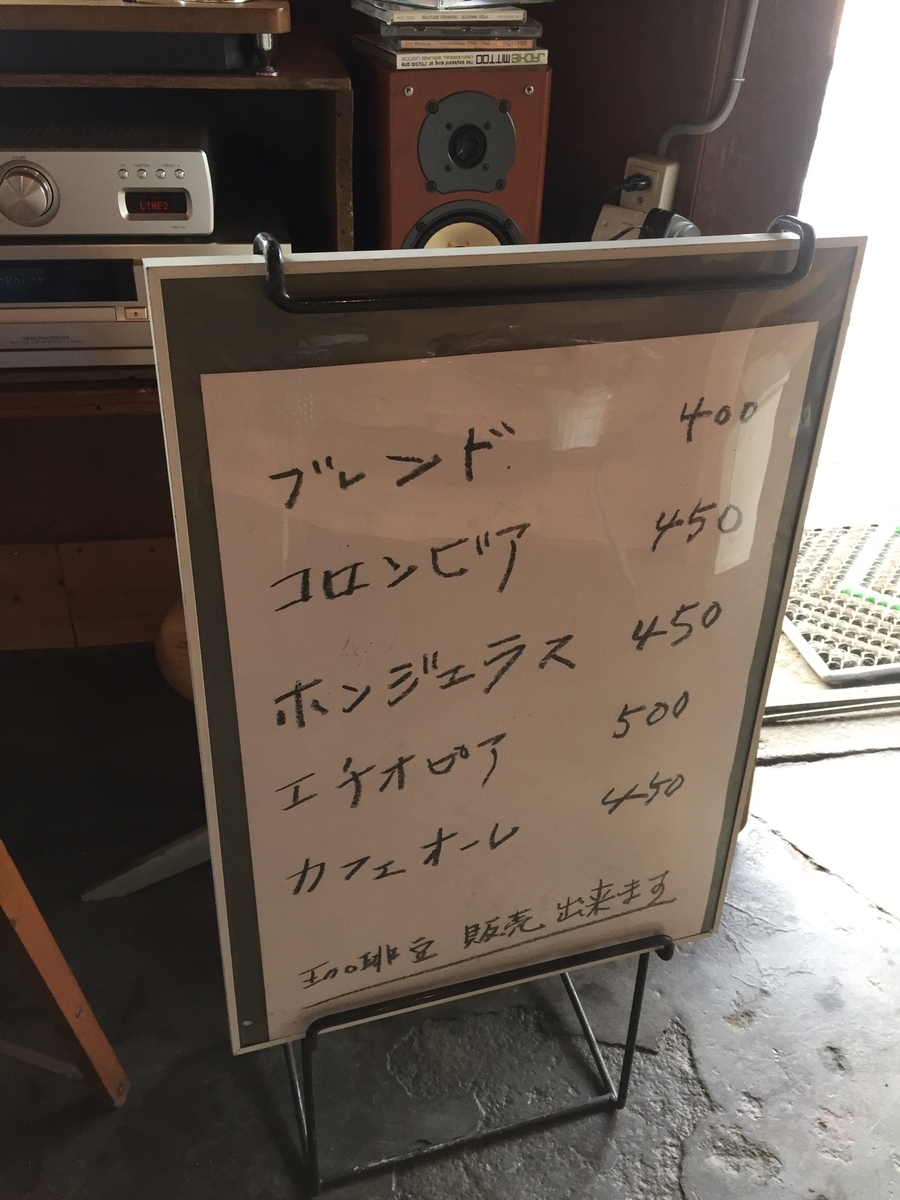 JACKIE MITTOO
LINE2
ブレンド 400
コロンビア 450
ホンジェラス 450
エチオピア 500
カフェオーレ 450
珈琲豆 販売 出来ます